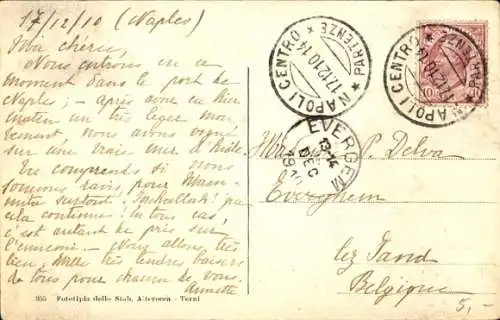 17/12/10 (Naples)
Ma chérie,
Nous entrons en ce
moment dans le port de
Naples; - après avoir eu hier
matin un très léger mou-
vement, nous avons vogué
sur une vraie mer d'huile.
Tu comprends si nous
sommes ravis, pour Mam-
surtout. que
cela continue! En tous cas,
c'est autant de pris sur
l'ennemi - Nous allons très
bien, Mille très tendres baisers
de tous pour chacun de vous.
Annette
355 Fototipia dello Stab. Alterocca - Terni
NAPOLI CENTRO
* PARTENZE *
17.12.10.14
NAPOLI CENTRO
* PARTENZE *
17.12.10.14
10
EVERGEM
13-14
DEC
19
P. Delva
Everghem
lez Gand
Belgique
5,-